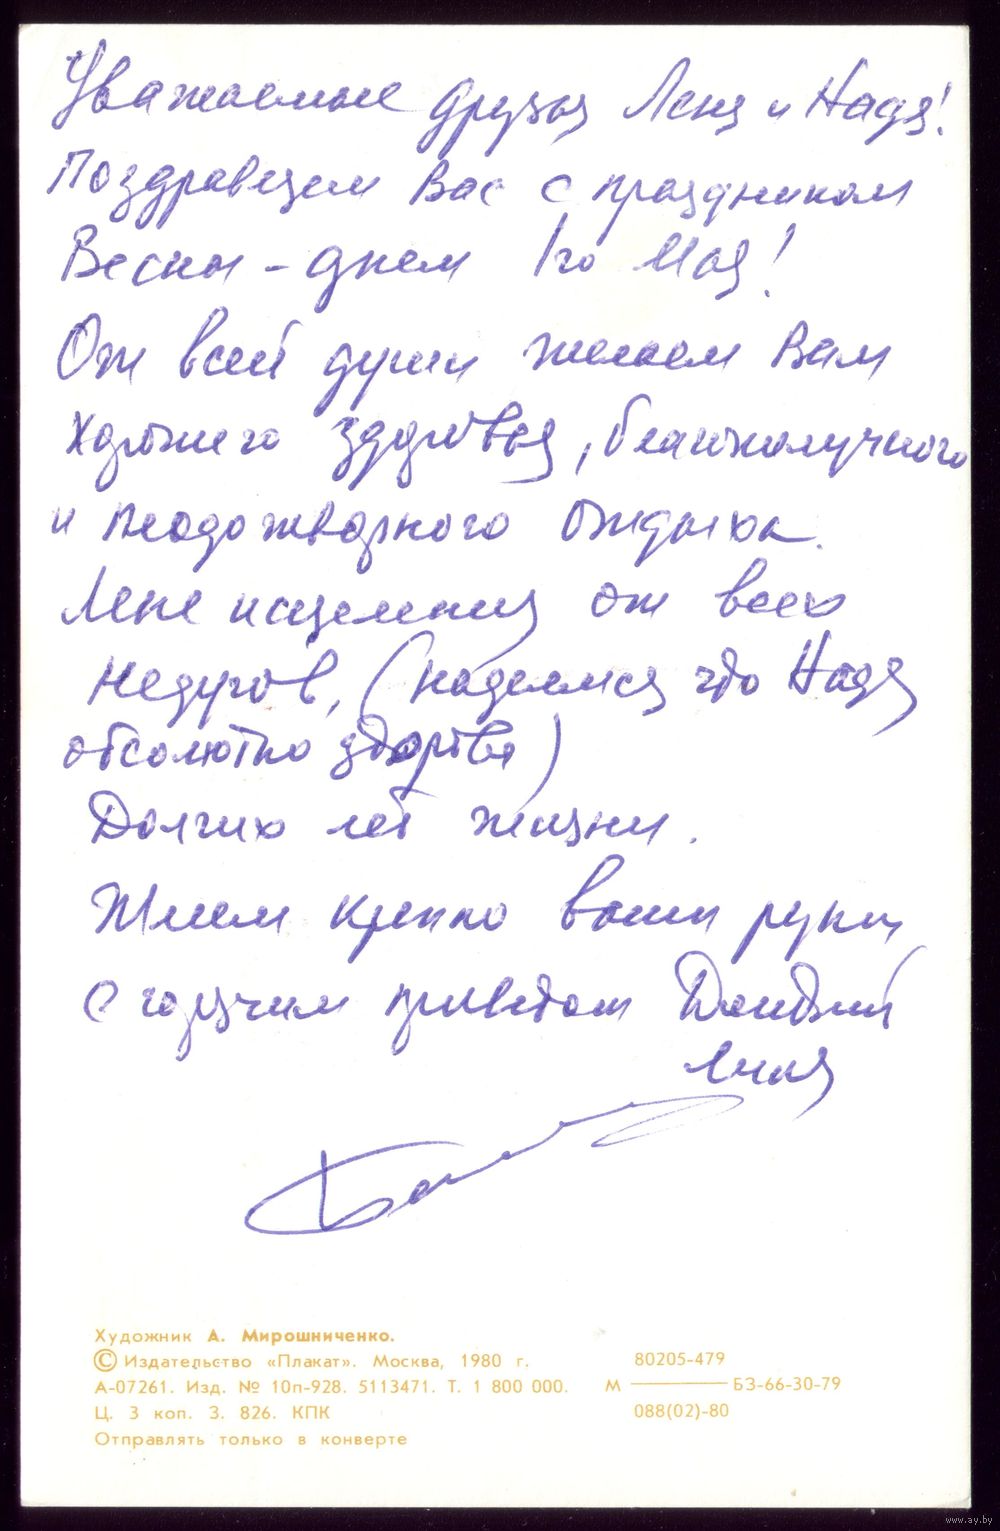 Уважаемые друзья Леня и Надя!
Поздравляем Вас с праздником
Весны - днем 1го Мая!
От всей души желаем Вам
хорошего здоровья, благополучного
и плодотворного отдыха.
Лене исцеления от всех
недугов, (надеемся что Надя
абсолютно здорова)
Долгих лет жизни.
Жмем крепко ваши руки
с горячим приветом
Художник А. Мирошниченко.
© Издательство «Плакат». Москва, 1980 г. 80205-479
А-07261. Изд. № 10п-928. 5113471. Т. 1 800 000. М ——— БЗ-66-30-79
Ц. 3 коп. З. 826. КПК 088(02)-80
Отправлять только в конверте
www.ay.by